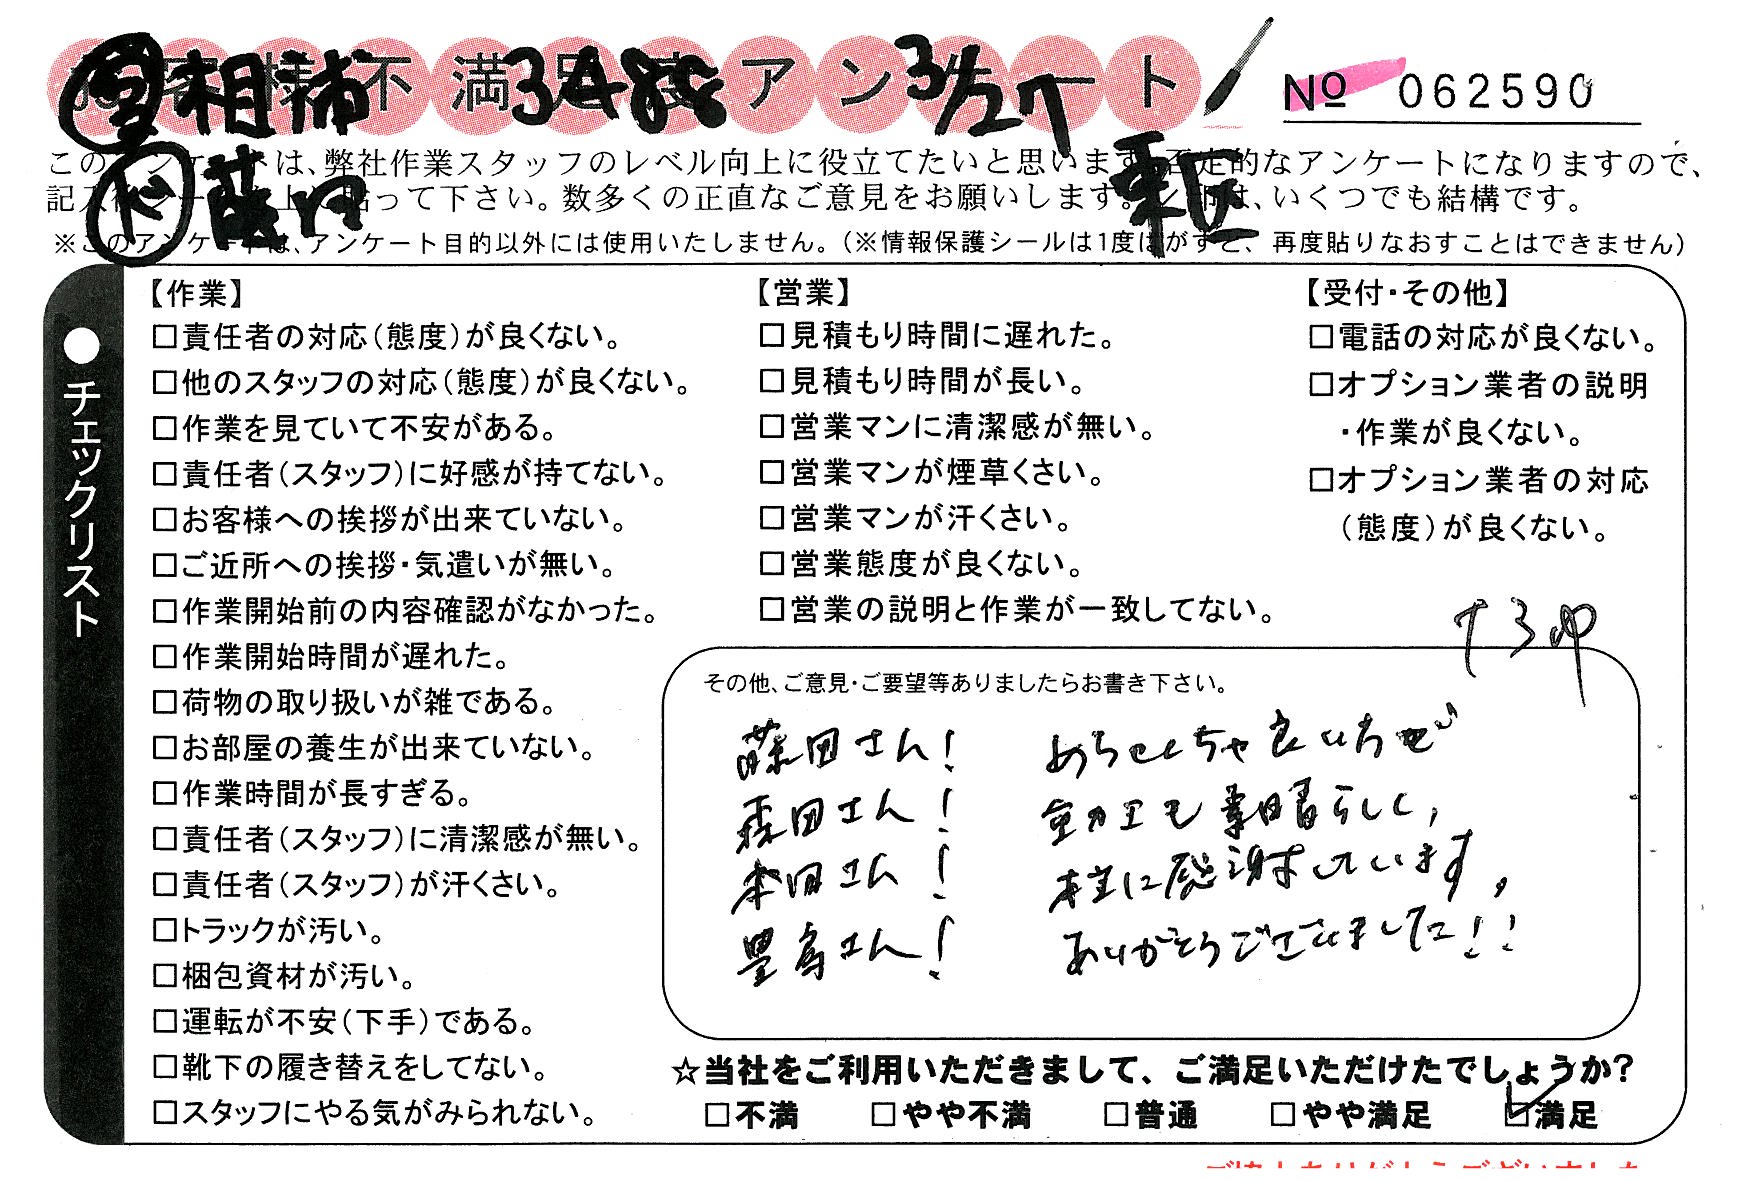 お客様不満足度アンケート
相浦 3488 3/27
№ 062590
このアンケートは、弊社作業スタッフのレベル向上に役立てたいと思います。否定的なアンケートになりますので、
記入後シールを上から貼って下さい。数多くの正直なご意見をお願いします。レ印は、いくつでも結構です。
※このアンケートは、アンケート目的以外には使用いたしません。（※情報保護シールは1度はがすと、再度貼りなおすことはできません）
●チェックリスト
【作業】
□責任者の対応（態度）が良くない。
□他のスタッフの対応（態度）が良くない。
□作業を見ていて不安がある。
□責任者（スタッフ）に好感が持てない。
□お客様への挨拶が出来ていない。
□ご近所への挨拶・気遣いが無い。
□作業開始前の内容確認がなかった。
□作業開始時間が遅れた。
□荷物の取り扱いが雑である。
□お部屋の養生が出来ていない。
□作業時間が長すぎる。
□責任者（スタッフ）に清潔感が無い。
□責任者（スタッフ）が汗くさい。
□トラックが汚い。
□梱包資材が汚い。
□運転が不安（下手）である。
□靴下の履き替えをしてない。
□スタッフにやる気がみられない。
【営業】
□見積もり時間に遅れた。
□見積もり時間が長い。
□営業マンに清潔感が無い。
□営業マンが煙草くさい。
□営業マンが汗くさい。
□営業態度が良くない。
□営業の説明と作業が一致してない。
【受付・その他】
□電話の対応が良くない。
□オプション業者の説明
・作業が良くない。
□オプション業者の対応
（態度）が良くない。
その他、ご意見・ご要望等ありましたらお書き下さい。
藤田さん！ めちゃくちゃ良い方で
森田さん！ 動工も素晴らしく，
本田さん！ 本当に感謝しています，
豊島さん！ ありがとうございました！！
☆当社をご利用いただきまして、ご満足いただけたでしょうか？
□不満 □やや不満 □普通 □やや満足 ☑満足
ご協力ありがとうございました